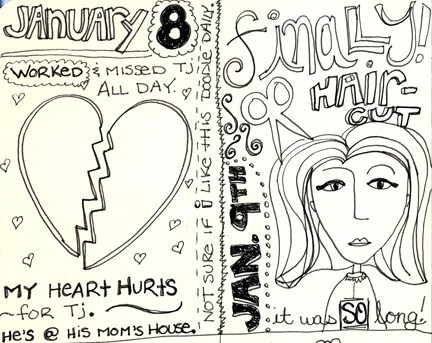 JANUARY 8
WORKED & MISSED Tj
ALL DAY.
MY HEART HURTS
~FOR Tj.
HE'S @ HIS MOM'S HOUSE.
NOT SURE IF i LIKE THIS DOODLE DAILY.
finALLY!
HAIR-
CUT
JAN. 9TH
it was SO long!